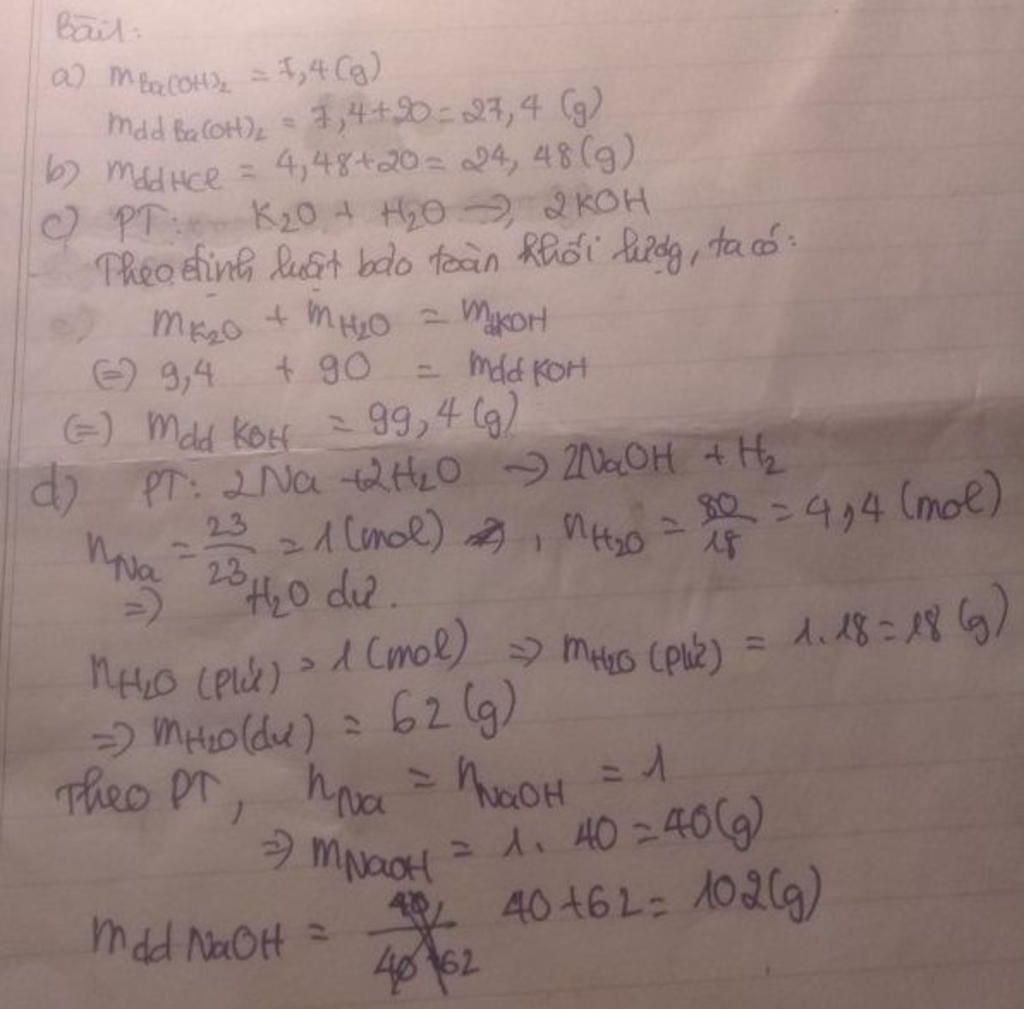 Bài 1:
a) mBa(OH)₂ = 7,4 (g)
mdd Ba(OH)₂ = 7,4+20 = 27,4 (g)
b) mdd HCl = 4,48+20 = 24,48 (g)
c) PT: K₂O + H₂O → 2KOH
Theo định luật bảo toàn khối lượng, ta có:
mK₂O + mH₂O = mddKOH
(=) 9,4 + 90 = mdd KOH
(=) mdd KOH = 99,4 (g)
d) PT: 2Na +2H₂O → 2NaOH + H₂
nNa = 23/23 = 1 (mol) , nH₂O = 80/18 = 4,4 (mol)
=> H₂O dư.
nH₂O (pứ) = 1 (mol) => mH₂O (pứ) = 1.18 = 18 (g)
=> mH₂O(dư) = 62 (g)
Theo PT, nNa = nNaOH = 1
=> mNaOH = 1. 40 = 40 (g)
mdd NaOH = 40+62 = 102 (g)